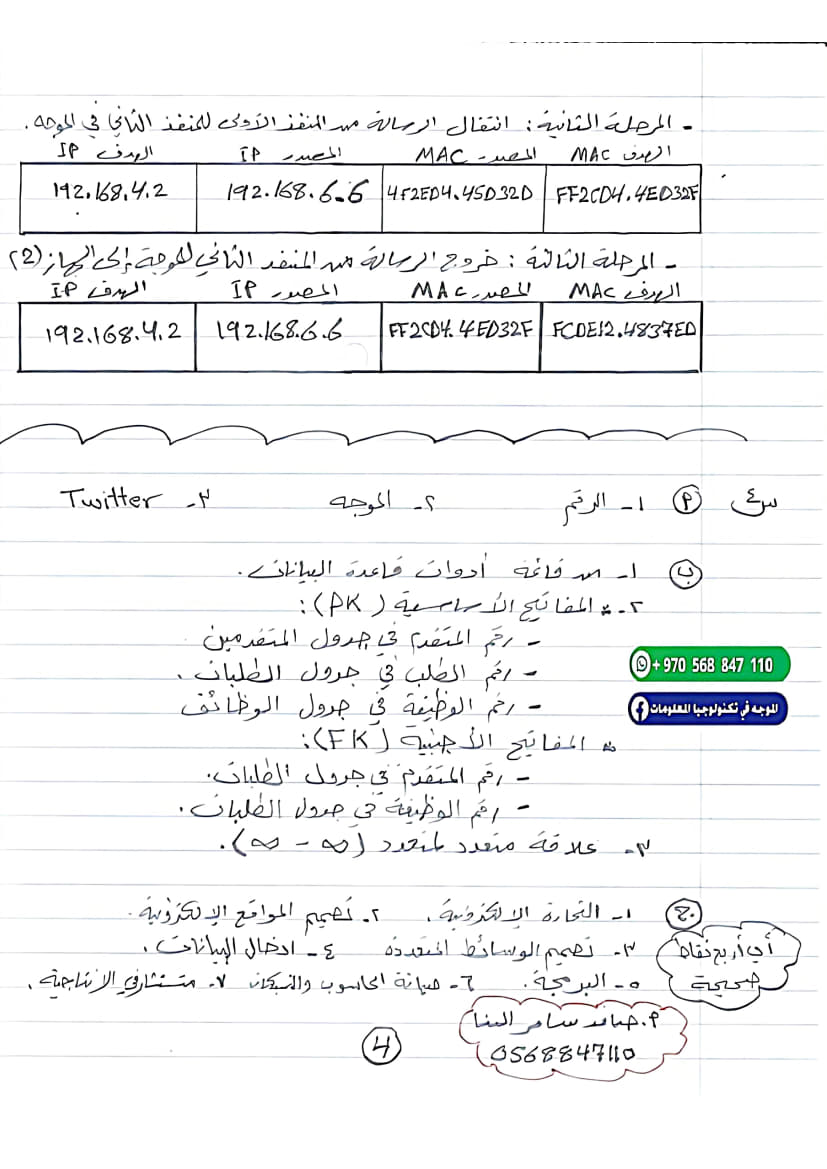 - المرحلة الثانية: انتقال الرسالة من المنفذ الأول للمنفذ الثاني في الموجه.
الهدف MAC المصدر MAC المصدر IP الهدف IP
FF2CD4.4ED32F 4F2ED4.45D32D 192.168.6.6 192.168.4.2
- المرحلة الثالثة: خروج الرسالة من المنفذ الثاني للموجة إلى الجهاز (2)
الهدف MAC المصدر MAC المصدر IP الهدف IP
FCDE12.4837ED FF2CD4.4ED32F 192.168.6.6 192.168.4.2
س٤ أ ١- الرقم ٢- الموجه ٣- Twitter
ب ١- من قائمة أدوات قاعدة البيانات.
٢- * المفاتيح الأساسية (PK):
- رقم المتقدم في جدول المتقدمين
- رقم الطلب في جدول الطلبات.
- رقم الوظيفة في جدول الوظائف
* المفاتيح الأجنبية (FK):
- رقم المتقدم في جدول الطلبات.
- رقم الوظيفة في جدول الطلبات.
٣- علاقة متعدد لمتعدد (∞ - ∞).
+970 568 847 110
الموجه في تكنولوجيا المعلومات
ج ١- التجارة الإلكترونية. ٢- تصميم المواقع الإلكترونية.
٣- تصميم الوسائط المتعددة ٤- ادخال البيانات.
٥- البرمجة. ٦- صيانة الحاسوب والشبكات ٧- مستشار في الإنتاجية.
أي أربع نقاط
صحيحة
م. سامر البنا
0568847110
4